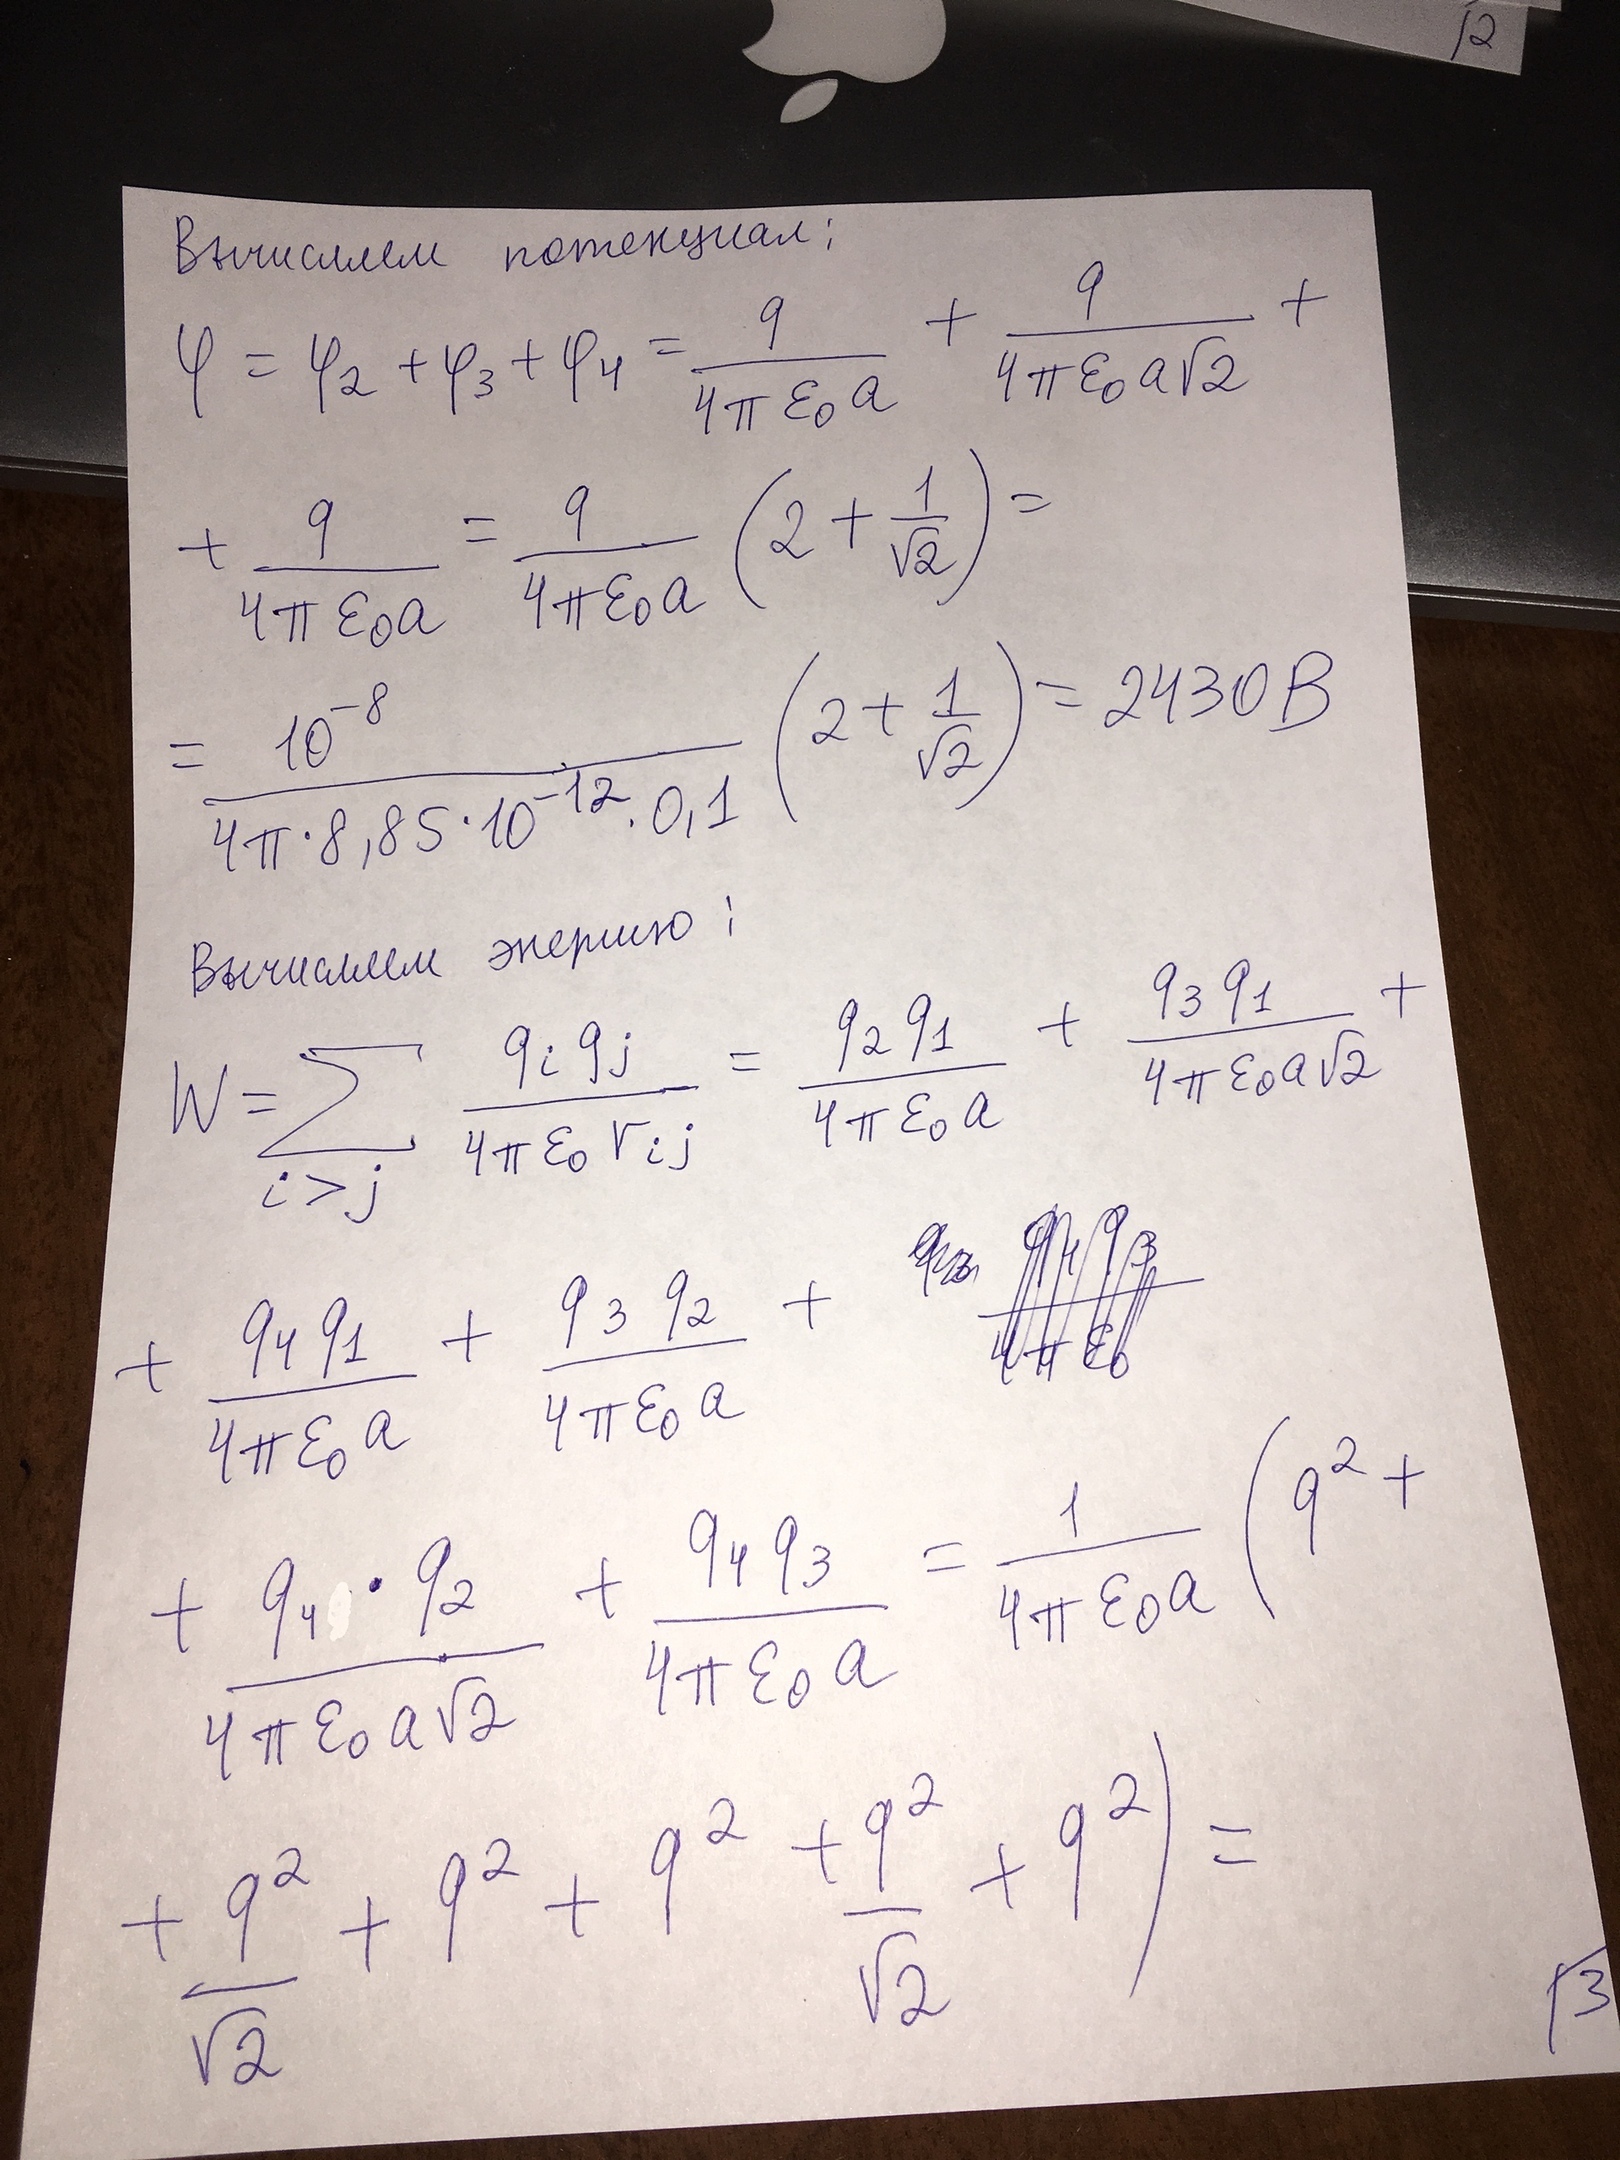 12
Вычисляем потенциал:
φ = φ₂ + φ₃ + φ₄ = q/(4πε₀a) + q/(4πε₀a√2) +
+ q/(4πε₀a) = q/(4πε₀a) (2 + 1/√2) =
= 10⁻⁸/(4π·8,85·10⁻¹²·0,1) (2 + 1/√2) = 2430 В
Вычисляем энергию:
W = Σ_{i>j} qᵢqⱼ/(4πε₀rᵢⱼ) = q₂q₁/(4πε₀a) + q₃q₁/(4πε₀a√2) +
+ q₄q₁/(4πε₀a) + q₃q₂/(4πε₀a) +
+ q₄·q₂/(4πε₀a√2) + q₄q₃/(4πε₀a) = 1/(4πε₀a) (q² +
+ q²/√2 + q² + q² + q²/√2 + q²) =
13